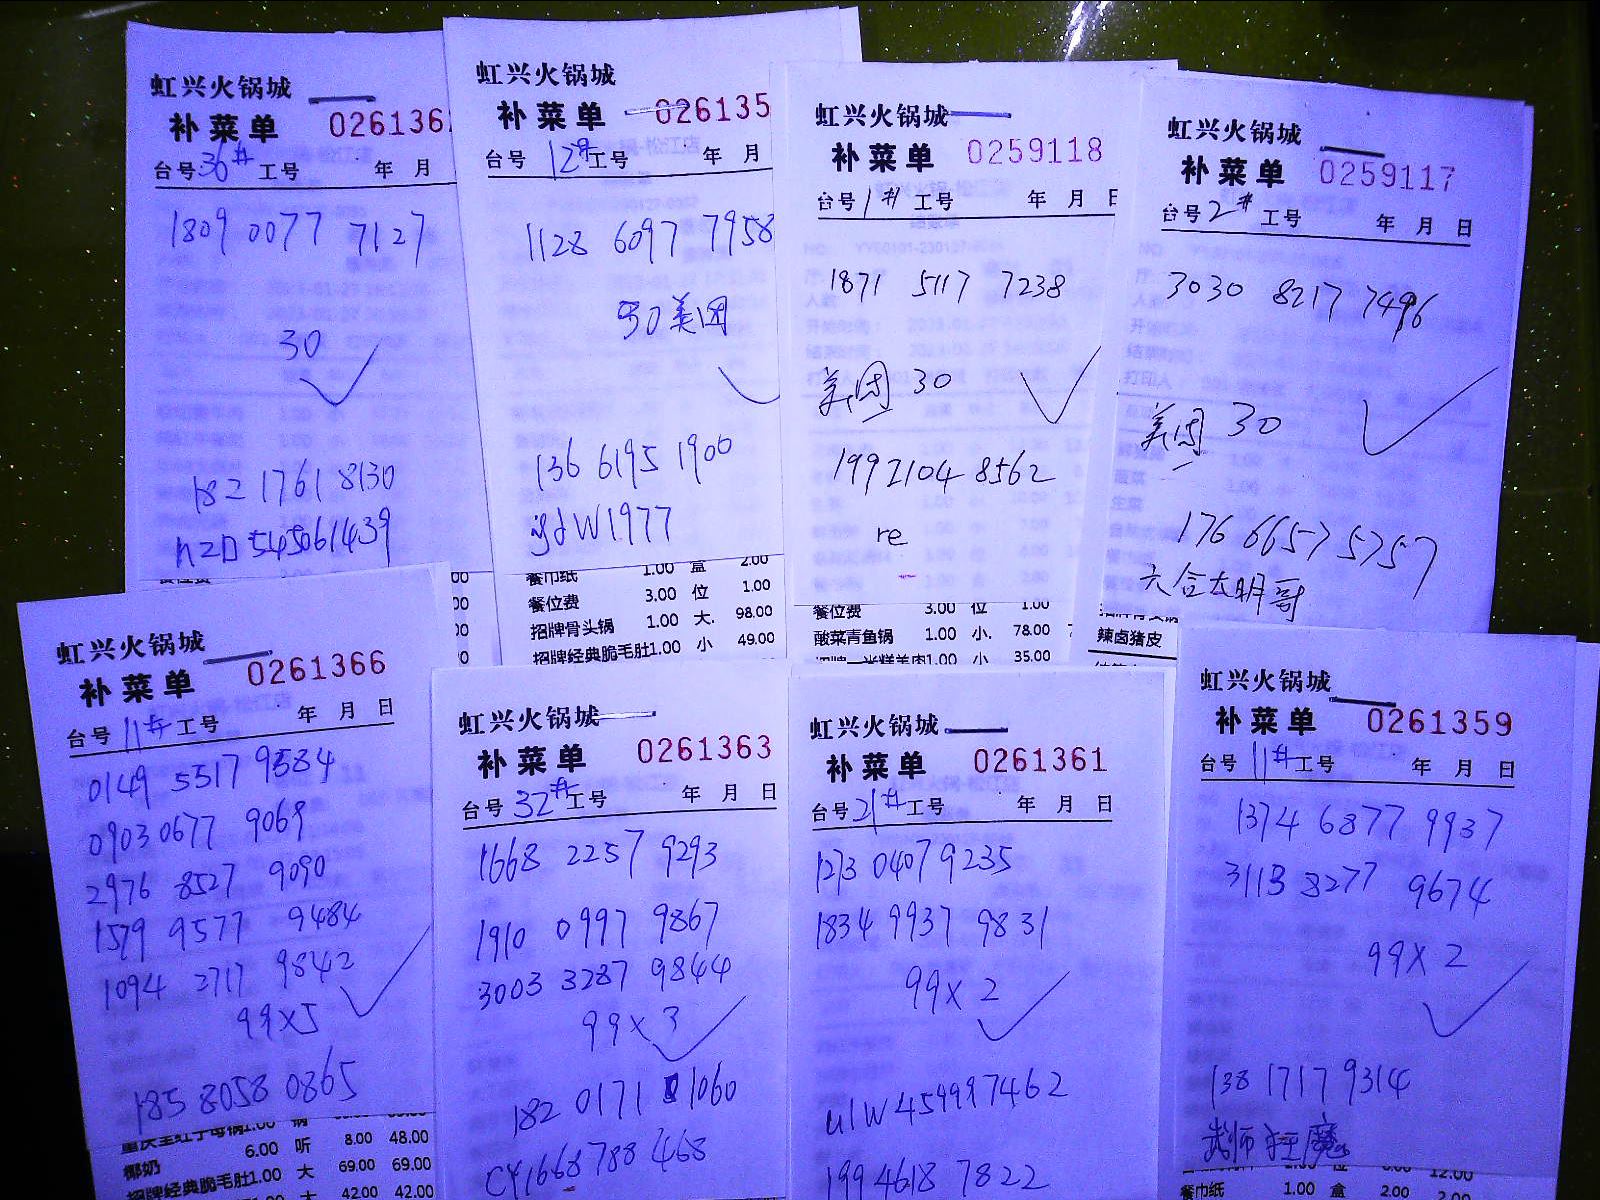 虹兴火锅城
补菜单 026136
台号 36# 工号 年 月
1809 0077 7127
30
182 1761 8130
nzD545061439
虹兴火锅城
补菜单 026135
台号 12# 工号 年 月
1128 6097 7958
50美团
136 6195 1900
jdW1977
餐巾纸 1.00 盒 2.00
餐位费 3.00 位 1.00
招牌骨头锅 1.00 大. 98.00
招牌经典脆毛肚1.00 小 49.00
虹兴火锅城
补菜单 0259118
台号 1# 工号 年 月 日
1871 5117 7238
美团 30
199 2104 8562
re
餐位费 3.00 位 1.00
酸菜青鱼锅 1.00 小. 78.00
1.00 小 35.00
虹兴火锅城
补菜单 0259117
台号 2# 工号 年 月 日
3030 8217 7496
美团 30
176 6657 5757
六合大明哥
辣卤猪皮
虹兴火锅城
补菜单 0261366
台号 11# 工号 年 月 日
0149 5517 9584
0903 0677 9069
2976 8527 9090
1579 9577 9484
1094 2717 9842
99×5
185 8058 0865
6.00 听 8.00 48.00
椰奶
招牌经典脆毛肚1.00 大 69.00 69.00
大 42.00 42.00
虹兴火锅城
补菜单 0261363
台号 32# 工号 年 月 日
1668 2257 9293
1910 0997 9867
3003 3287 9844
99×3
182 0171 1060
CY1668788468
虹兴火锅城
补菜单 0261361
台号 21# 工号 年 月 日
1273 0407 9235
1834 9937 9831
99×2
ulW459997462
199 4618 7822
虹兴火锅城
补菜单 0261359
台号 11# 工号 年 月 日
1374 6877 9937
3113 8277 9674
99×2
138 1717 9314
餐巾纸 1.00 盒 2.00 2.00